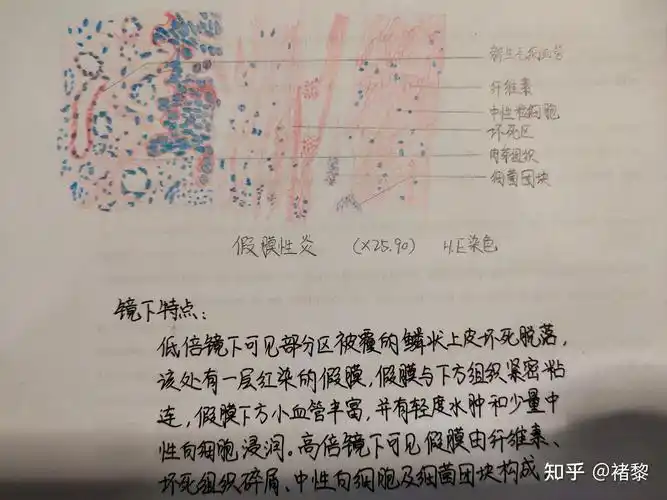 新生毛细血管
纤维素
中性粒细胞
坏死区
肉芽组织
细菌团块
假膜性炎 (×25.90) H.E染色
镜下特点:
低倍镜下可见部分区被覆的鳞状上皮坏死脱落,
该处有一层红染的假膜,假膜与下方组织紧密粘
连,假膜下方小血管丰富,并有轻度水肿和少量中
性白细胞浸润。高倍镜下可见假膜由纤维素、
坏死组织碎屑、中性白细胞及细菌团块构成
知乎 @褚黎